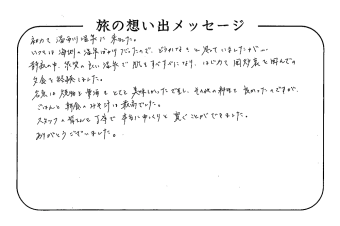 旅の想い出メッセージ
初めて湯西川温泉に来ました。
いつもは海側の温泉ばかりだったので、どうかなぁと思っていましたが…
静寂の中、泉質の良い温泉で肌もすべすべになり、はじめて囲炉裏を囲んでの
夕食を経験しました。
名物は焼物と地酒もとても美味しかったですし、その他の料理も良かったのですが、
ごはんと朝食のみそ汁は最高でした。
スタッフの皆さんも丁寧で本当にゆっくりと寛ぐことができました。
ありがとうございました。